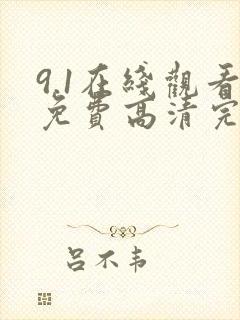 9.1在綫觀看
免費高清完
呂不韦